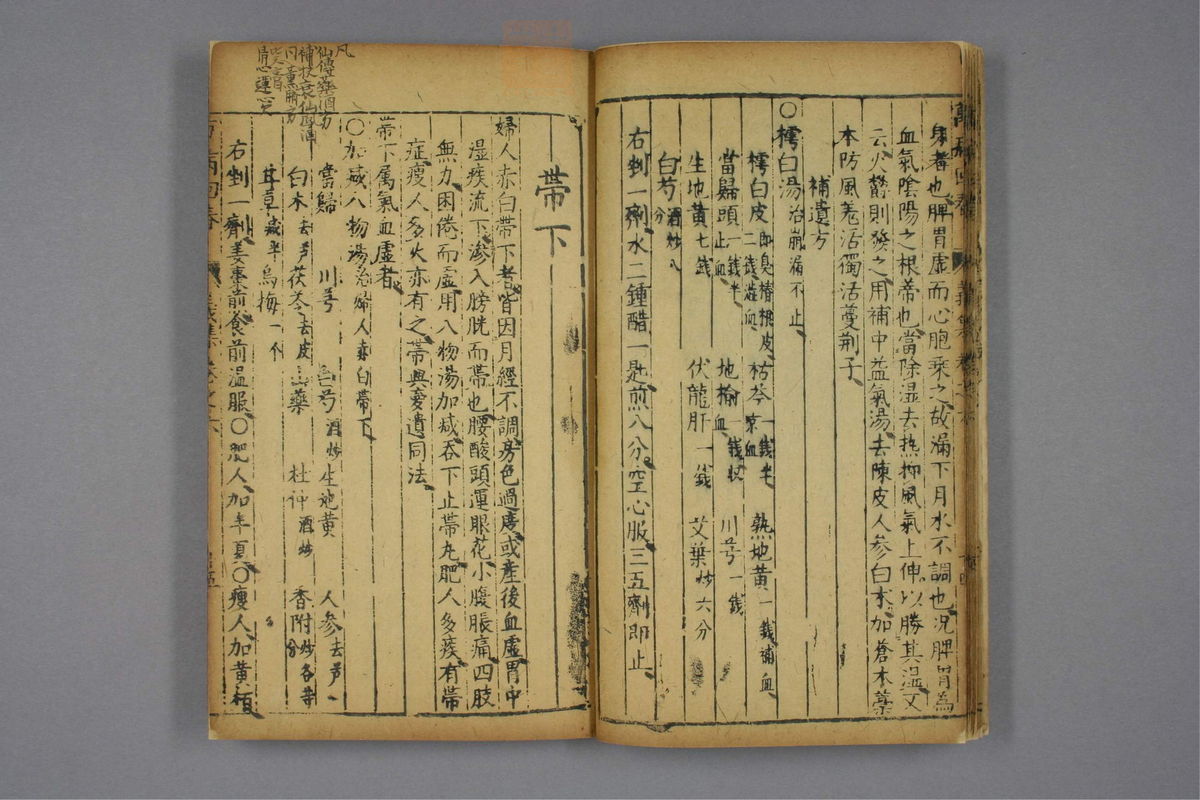 身者也脾胃虛而心胞乘之故漏下月水不調也況脾胃為
血氣陰陽之根蒂也當除湿去热抑風氣上伸以勝其湿又
云火欝則發之用補中益氣湯去陳皮人参白术加蒼术藁
本防風羗活獨活蔓荆子
補遺方
〇樗白湯治崩漏不止
樗白皮即臭椿根皮二銭澁血 枯芩一銭半凉血 熟地黄一銭補血
當歸頭一銭半止血 地榆一銭收血 川芎一銭
生地黄七銭 伏龍肝一銭 艾葉炒六分
白芍酒炒八分
右剉一劑水二鍾醋一匙煎八分空心服三五劑即止
帶下
婦人赤白帶下者皆因月經不調房色過度或產後血虛胃中
湿痰流下滲入膀胱而帶也腰酸頭運眼花小腹脹痛四肢
無力困倦而虛用八物湯加减吞下止帶丸肥人多痰有帶
症瘦人多火亦有之帶與夢遺同法
帶下属氣血虛者
〇加减八物湯治婦人赤白帶下
當歸 川芎 白芍酒炒 生地黄 人参去芦
白术去芦 茯苓去皮 山藥 杜仲酒炒 香附炒各等分
甘草减半 烏梅一个
右剉一劑姜棗煎食前温服〇肥人加半夏〇瘦人加黄栢
凡
仙傳藥酒方
補扶衰仙鳳酒